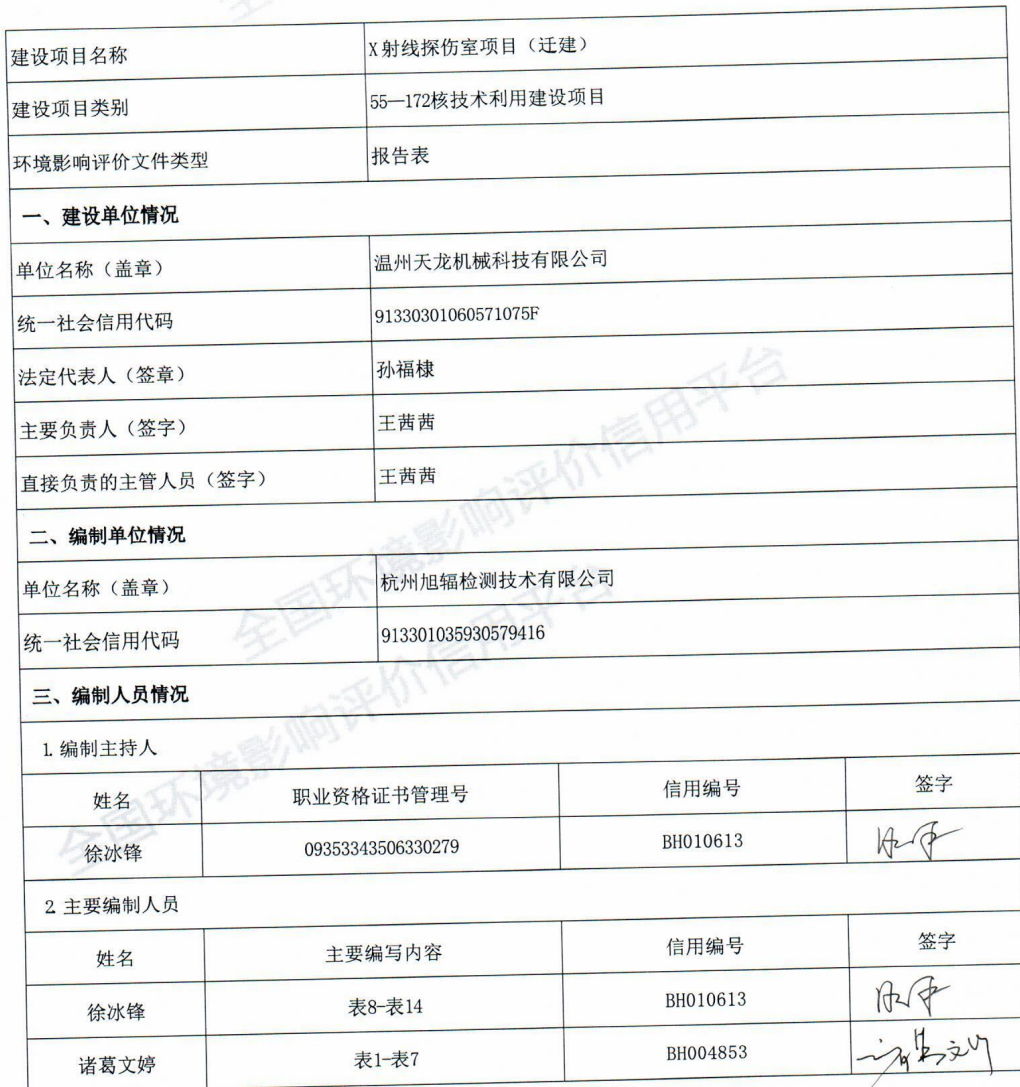 建设项目名称 X射线探伤室项目（迁建）
建设项目类别 55—172核技术利用建设项目
环境影响评价文件类型 报告表
一、建设单位情况
单位名称（盖章） 温州天龙机械科技有限公司
统一社会信用代码 91330301060571075F
法定代表人（签章） 孙福棣
主要负责人（签字） 王茜茜
直接负责的主管人员（签字） 王茜茜
二、编制单位情况
单位名称（盖章） 杭州旭辐检测技术有限公司
统一社会信用代码 913301035930579416
三、编制人员情况
1. 编制主持人
姓名 职业资格证书管理号 信用编号 签字
徐冰锋 09353343506330279 BH010613
2. 主要编制人员
姓名 主要编写内容 信用编号 签字
徐冰锋 表8-表14 BH010613
诸葛文婷 表1-表7 BH004853
全国环境影响评价信用平台
全国环境影响评价信用平台